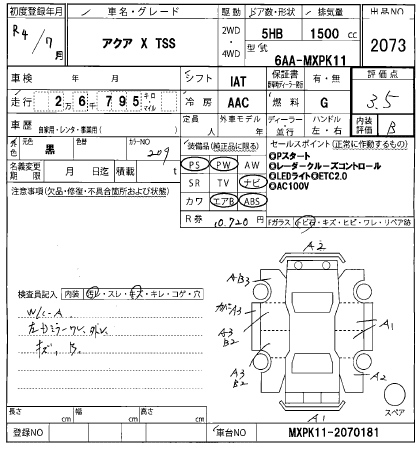 初度登録年月 車名・グレード 駆動 ドア数・形状 排気量 出品NO
R4/7月 アクア X TSS 2WD・4WD 5HB 1500cc 2073
型式 6AA-MXPK11
車検 年 月 シフト IAT 保証書 有・無 評価点
走行 2万6千795キロ・マイル 冷房 AAC 燃料 G 3.5
車歴 自家用・レンタ・事業用( ) 定員 人 外車モデル 年 ディーラー・並行 ハンドル 左・右 内装評価 B
外色 元色 黒 色替 カラーNO 209
装備品(純正品に限る) セールスポイント(正常に作動するもの)
名義変更期限 月 日迄 積載 t
PS PW AW
SR TV ナビ
カワ エアB ABS
●Pスタート
●レーダークルーズコントロール
●LEDライト●ETC2.0
●AC100V
注意事項(欠品・修復・不具合箇所および状態)
R券 10.720円
Fガラス・トビ石・キズ・ヒビ・ワレ・リペア跡
A2
A・B3
A3
A3
B2
A1
A3
B2
A2
A1
スペア
検査員記入 内装 汚レ・スレ・キズ・キレ・コゲ・穴
W/C-A
キズ、B.
長さ cm 幅 cm 高さ cm
登録NO 車台NO MXPK11-2070181